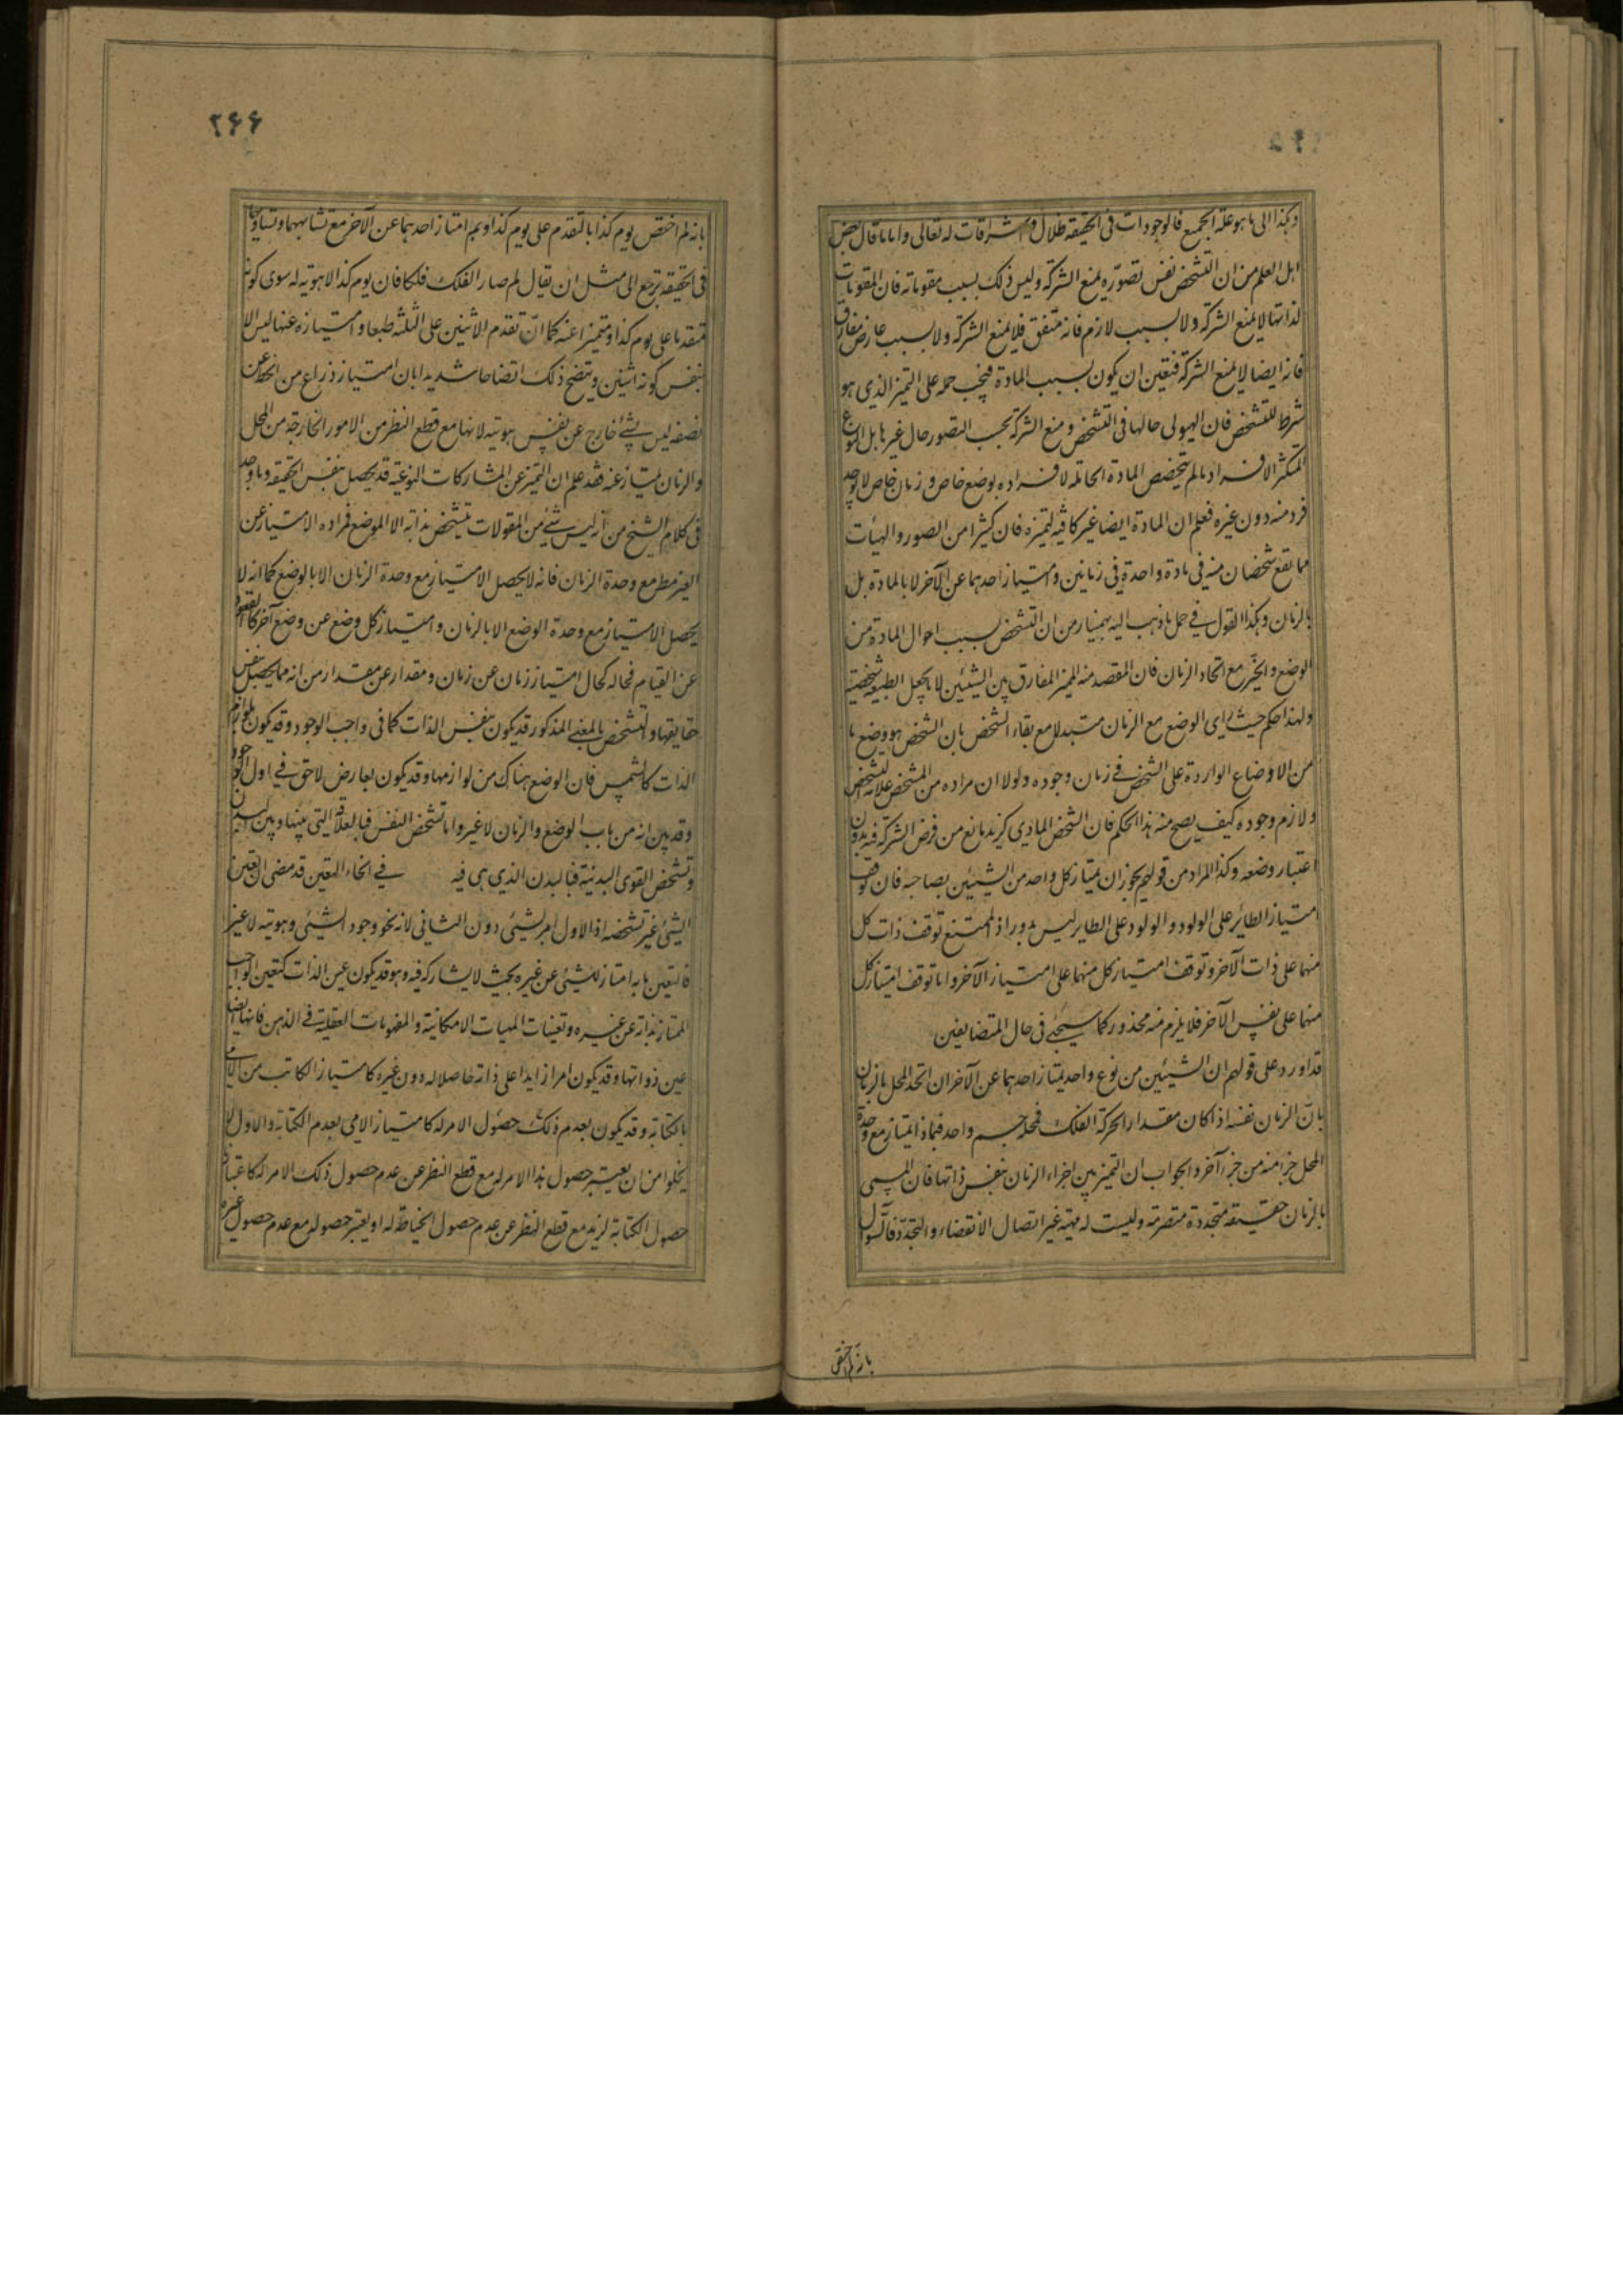 وهكذا الى ما هو علة الجميع فالوجودات فى الحقيقة ظلال واشراقات له تعالى واما ما قال بعض
اهل العلم من ان التشخص نفس تصوره يمنع الشركة وليس ذلك بسبب مقوماته فان المقومات
لذاتها لا يمنع الشركة ولا بسبب لازم فانه متفق فلا يمنع الشركة ولا بسبب عارض مفارق
فانه ايضا لا يمنع الشركة فتعين ان يكون بسبب المادة فيجب حمله على التميز الذى هو
شرط للتشخص فان الهيولى حالها فى التشخص ومنع الشركة بحسب التصور حال غيرها بل النوع
المتكثر الافراد ما لم يتخصص المادة الحاملة لافراده بوضع خاص وزمان خاص لا يوجد
فرد منه دون غيره فعلم ان المادة ايضا غير كافية لتميزه فان كثيرا من الصور والهيئات
مما يقع شخصان منه فى مادة واحدة فى زمانين وامتياز احدهما عن الآخر لا بالمادة بل
بالزمان وهكذا القول فى حمل ما ذهب اليه بهمنيار من ان التشخص بسبب احوال المادة من
الوضع والحيز مع اتحاد الزمان فان المقصد منه المميز المفارق بين الشيئين لا ما يجعل الطبيعة شخصية
ولهذا حكم حيث راى الوضع مع الزمان متبدلا مع بقاء الشخص بان الشخص هو وضع ما
من الاوضاع الواردة على الشخص فى زمان وجوده ولولا ان مراده من المشخص علامة التشخص
ولازم وجوده كيف يصح منه هذا الحكم فان الشخص المادى كزيد مانع من فرض الشركة فيه بدون
اعتبار وضعه وكذا المراد من قولهم يجوز ان يمتاز كل واحد من الشيئين بصاحبه فان توقف
امتياز الطائر على الولود والولود على الطاير ليس بدور اذ الممتنع توقف ذات كل
منهما على ذات الآخر وتوقف امتياز كل منهما على امتياز الآخر واما توقف امتياز كل
منهما على نفس الآخر فلا يلزم منه محذور كما سيجئ فى حال المتضايفين
قد اورد على قولهم ان الشيئين من نوع واحد يمتاز احدهما عن الآخر ان اتحد المحل بالزمان
بان الزمان نفسه اذا كان مقدارا لحركة الفلك فمحله جسم واحد فبماذا يمتاز مع وحدة
المحل جزء منه من جزء آخر والجواب ان التميز بين اجزاء الزمان بنفس ذاتها فان المسمى
بالزمان حقيقة متجددة متصرمة وليست له مهية غير اتصال الانقضاء والتجدد فالسؤال
بانه لم اختص
۲۶۶
بانه لم اختص يوم كذا بالتقدم على يوم كذا وبم امتاز احدهما عن الآخر مع تشابههما وتساويهما
فى الحقيقة يرجع الى مثل ان يقال لم صار الفلك فلكا فان يوم كذا لا هوية له سوى كونه
متقدما على يوم كذا ومتميزا عنه كما ان تقدم الاثنين على الثلثة طبعا وامتيازه عنها ليس الا
بنفس كونه اثنين ويتضح ذلك اتضاحا شديدا بان امتياز ذراع من الخط عن
نصفه ليس بشئ خارج عن نفس هويته لانها مع قطع النظر من الامور الخارجة من المحل
والزمان يمتاز عنه فقد علم ان التميز عن المشاركات النوعية قد يحصل بنفس الحقيقة وما وجد
فى كلام الشيخ من انه ليس شئ من المقولات يتشخص بذاته الا الوضع فمراده الامتياز عن
الغير مط مع وحدة الزمان فانه لا يحصل الامتياز مع وحدة الزمان الا بالوضع كما انه لا
يحصل الامتياز مع وحدة الوضع الا بالزمان وامتياز كل وضع عن وضع آخر كالقعود
عن القيام فحاله كحال امتياز زمان عن زمان ومقدار عن مقدار من انه مما يحصل بنفس
حقايقها والتشخص بالمعنى المذكور قد يكون بنفس الذات كما فى واجب الوجود وقد يكون بلوازم
الذات كالشمس فان الوضع هناك من لوازمها وقد يكون بعارض لاحق فى اول الوجود
وقد بين انه من باب الوضع والزمان لا غير واما تشخص النفس فبالعلاقة التى بينها وبين البدن
وتشخص القوى البدنية فبالبدن الذى هى فيه فى انحاء التعين قد مضى ان تعين
الشئ غير تشخصه اذ الاول امر نسبى دون الثانى لانه نحو وجود الشئ وهويته لا غير
فالتعين ما به امتياز الشئ عن غيره بحيث لا يشاركه فيه وهو قد يكون عين الذات كتعين الواجب
الممتاز بذاته عن غيره وتعينات المهيات الامكانية والمفهومات العقلية فى الذهن فانها ايضا
عين ذواتها وقد يكون امرا زايدا على ذاته حاصلا له دون غيره كامتياز الكاتب من الامى
بالكتابة وقد يكون بعدم ذلك حصول الامر له كامتياز الامى بعدم الكتابة والاول لا
يخلوا من ان يعتبر حصول هذا الامر له مع قطع النظر عن عدم حصول ذلك الامر له كاعتبار
حصول الكتابة لزيد مع قطع النظر عن عدم حصول الخياطة له او يعتبر حصوله مع عدم حصول غيره